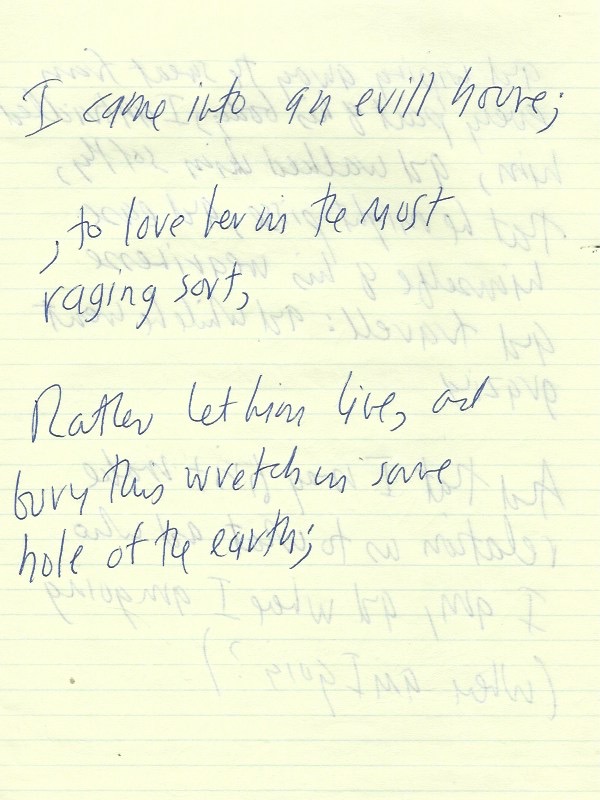 I came into an evill houre;
, to love her in the most
raging sort,
Rather let him live, and
bury this wretch in some
hole of the earth;